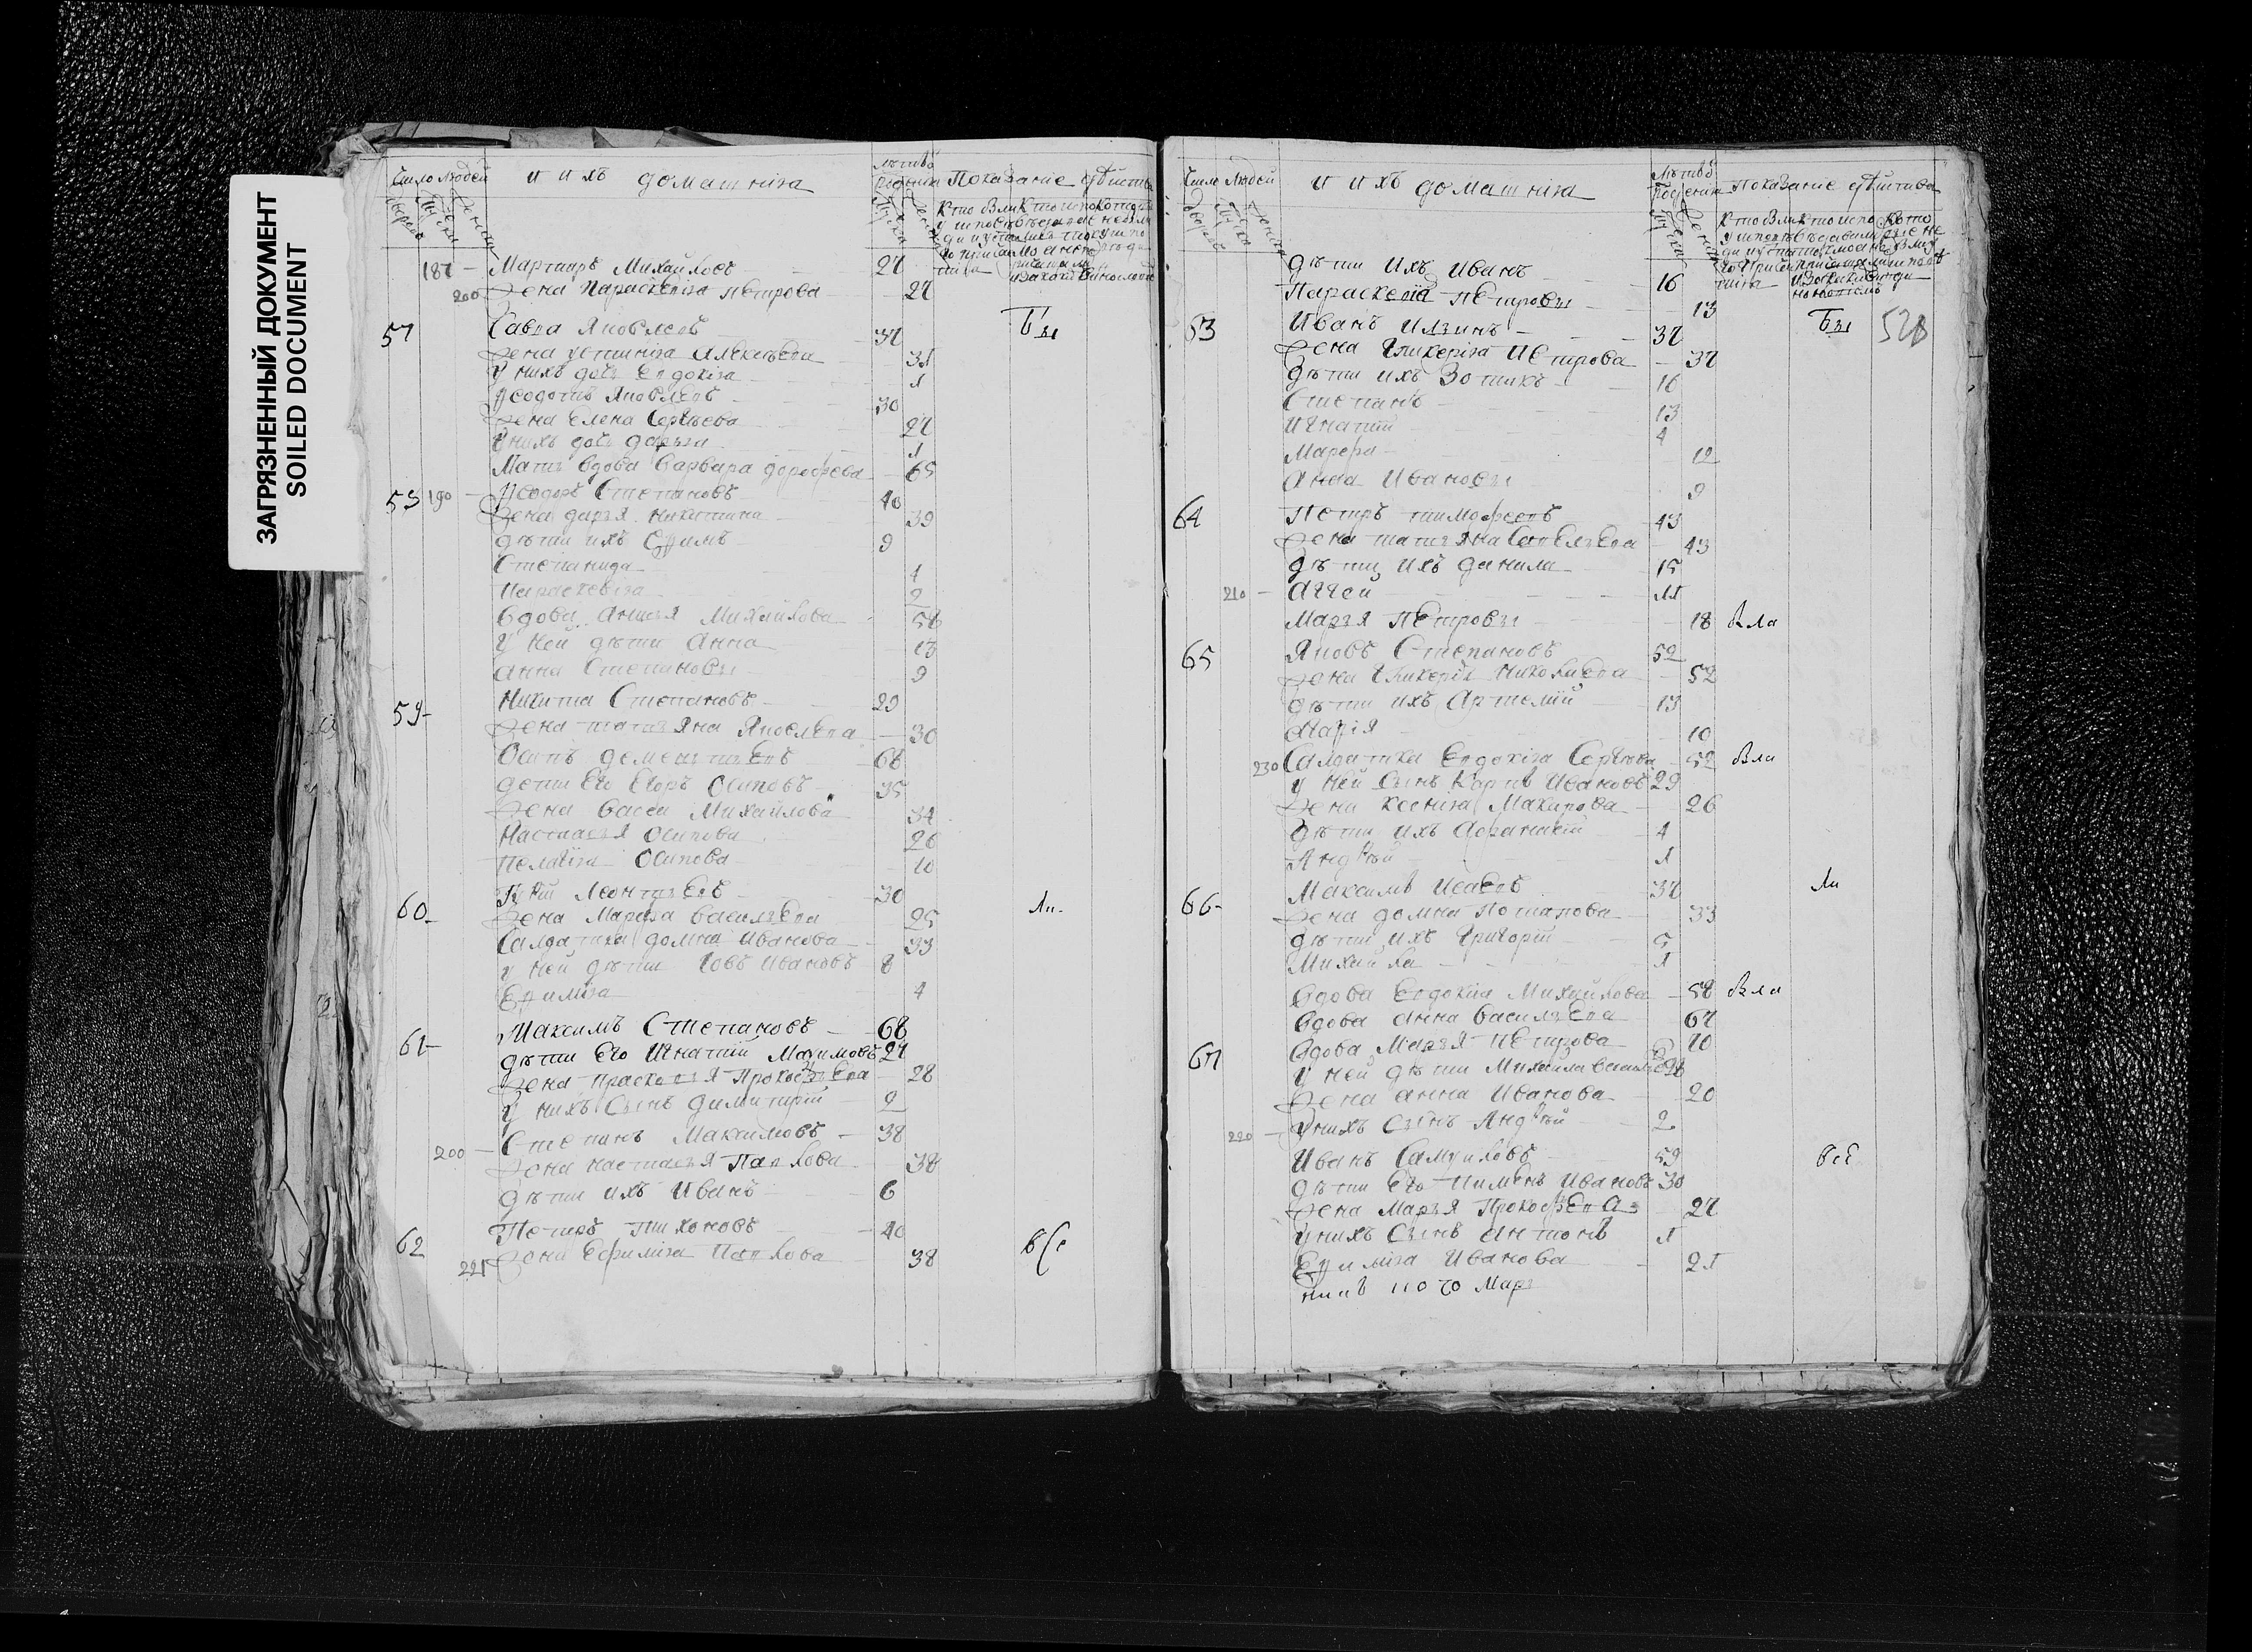 ЗАГРЯЗНЕННЫЙ ДОКУМЕНТ
SOILED DOCUMENT
Число людей и ихъ домашнiя Показанiе
187 Мартиръ Михайловъ 27
200 Жена Параскевiя Петрова 27
57 Савва Яковлевъ 37 Бы
Жена Устинiя Алексѣева 31
У нихъ дочь Евдокiя 1
Ѳеодотъ Яковлевъ 30
Жена Елена Сергѣева 27
У нихъ дочь Дарья 1
Мать вдова Варвара Дорофѣева 65
190 Ѳеодоръ Степановъ 40
Жена Дарья Никитина 39
Дѣти ихъ 9
Степанида 4
Параскевiя 2
Вдова Анисья Михайлова
У ней дѣти Анна 13
Анна Степановы 9
59 Никита Степановъ 29
Жена Татьяна Яковлева 30
Осипъ Дементьевъ
Дети Его Егоръ Осиповъ 35
Жена Васса Михайлова 34
Настасья Осипова 26
Пелагiя Осипова 10
60 Леонтьевъ 30 Ли
Жена Марiя Васильева 25
Салдатка Домна Иванова 33
У ней дѣти Iовъ Ивановъ 8
Еѳимiя 4
61 Максимъ Степановъ 68
Дѣти Его Игнатiй
Жена Прасковья Прокофьева 28
У нихъ Сынъ Димитрiй 2
200 Степанъ Максимовъ 38
Жена Настасья Павлова 38
Дѣти ихъ Иванъ 6
62 Петръ Тихоновъ 40 Все
221 Жена Ефимiя Павлова 38
Число людей и ихъ домашнiя Показанiе
Дѣти ихъ Иванъ 16
Параскевiя Петровы 13
Иванъ 37 Бы
Жена Гликерiя Петрова 37
Дѣти ихъ Зотикъ 16
Степанъ 13
Игнатiй 4
Марѳа 12
Анна Ивановы 9
64 Петръ Тимофеевъ 43
Жена Татьяна Савельева 43
Дѣти ихъ Данила 15
210 Аггей 11
Марья Петровы 18 Вла
65 Яковъ Степановъ 52
Жена Гликерiя Николаева 52
Дѣти ихъ Артемiй 13
Марiя 10
230 Салдатка Евдокiя Сергѣева 52 Вла
У ней Сынъ Карпъ Ивановъ 29
Жена Ксенiя Макарова 26
Дѣти ихъ 4
Андрѣй 1
66 Максимъ Исаевъ 37 Ли
Жена Домна Потапова 33
Дѣти ихъ Григорiй 5
Михайла 1
Вдова Евдокiя Михайлова 58 Вла
Вдова Анна Васильева 67
67 Вдова Марья Петрова
У ней дѣти Михайла
Жена Анна Иванова 20
220 У нихъ Сынъ Андрѣй 2
Иванъ Самуиловъ 59 все
Дѣти Его Пименъ Ивановъ 30
Жена Марья Прокофьева 27
У нихъ Сынъ Антонъ 1
Еѳимiя Иванова 21